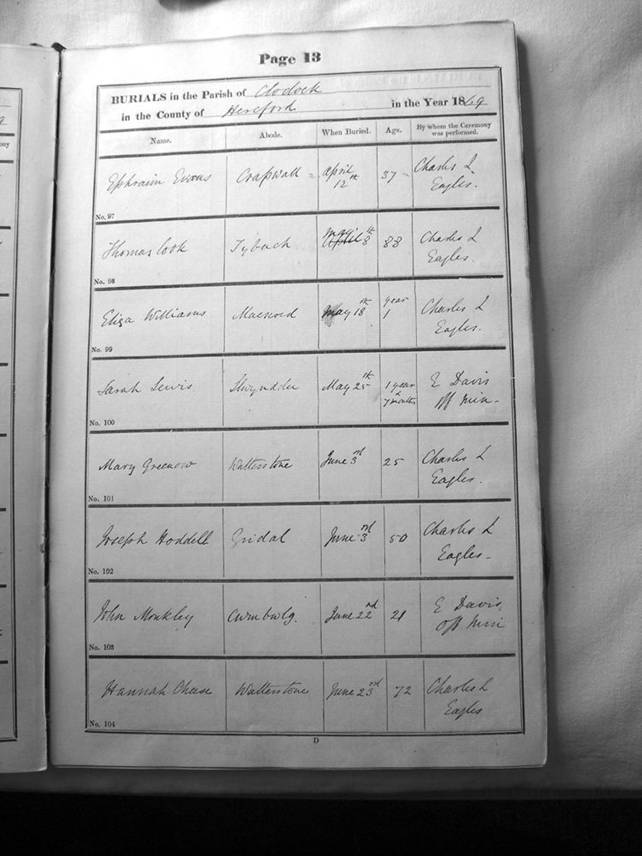 Page 13
BURIALS in the Parish of Clodock
in the County of Hereford in the Year 1869
Name. Abode. When Buried. Age. By whom the Ceremony was performed.
Ephraim Evans April 12th 37 Charles L Eagles.
No. 97
Thomas Cook Tybach May 8th 83 Charles L Eagles.
No. 98
Eliza Williams May 18th year 1 Charles L Eagles.
No. 99
Sarah Lewis May 25th 1 year & 7 months E Davis Off Min.
No. 100
Mary Greenow Walterstone June 3rd 25 Charles L Eagles.
No. 101
Joseph Hoddell Gridal June 3rd 50 Charles L Eagles
No. 102
John Monkley Cwmbwlg. June 22nd 21 E Davis, Off Min
No. 103
Hannah Chase Walterstone June 23rd 72 Charles L Eagles
No. 104
D